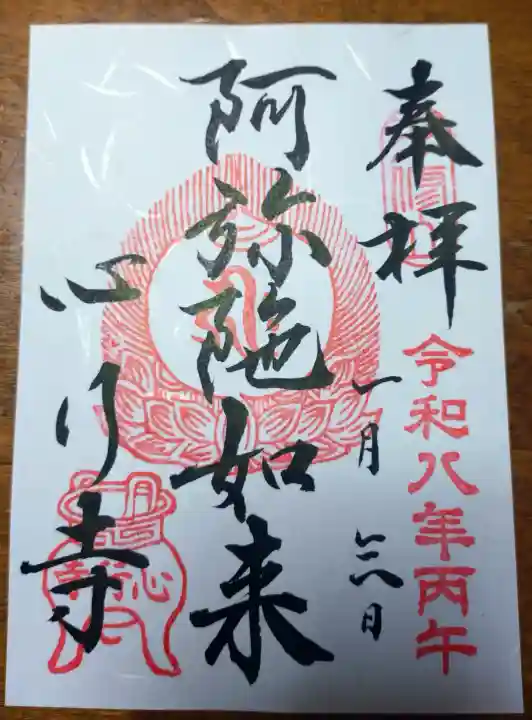 奉拝
令和八年丙午
一月
阿弥陀如来
心行寺
心行寺